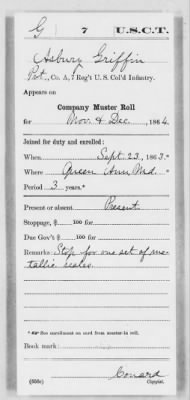 G 7 U.S.C.T.
Asbury Griffin
Pvt., Co. A, 7 Reg't U. S. Col'd Infantry.
Appears on
Company Muster Roll
for Nov. & Dec., 1864.
Joined for duty and enrolled:
When Sept. 23, 1863.*
Where Queen Ann, Md.
Period 3 years.*
Present or absent Present
Stoppage, $ 100 for
Due Gov't $ 100 for
Remarks: Stop for one set of me-
tallic scales.
* See enrollment on card from muster-in roll.
Book mark:
Conard
(358c) Copyist.